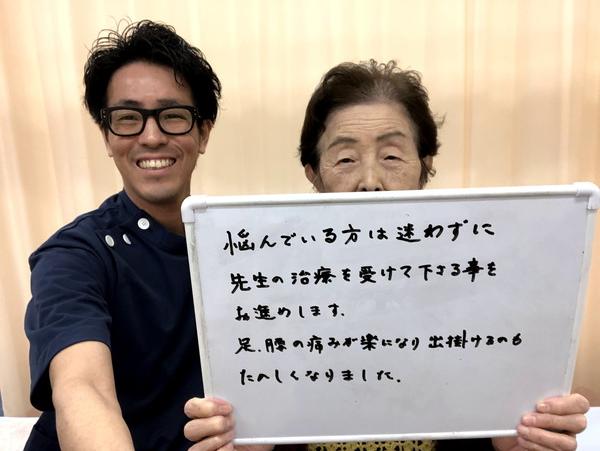 悩んでいる方は迷わずに
先生の治療を受けて下さる事を
お進めします.
足.腰の痛みが楽になり出掛けるのも
たのしくなりました.